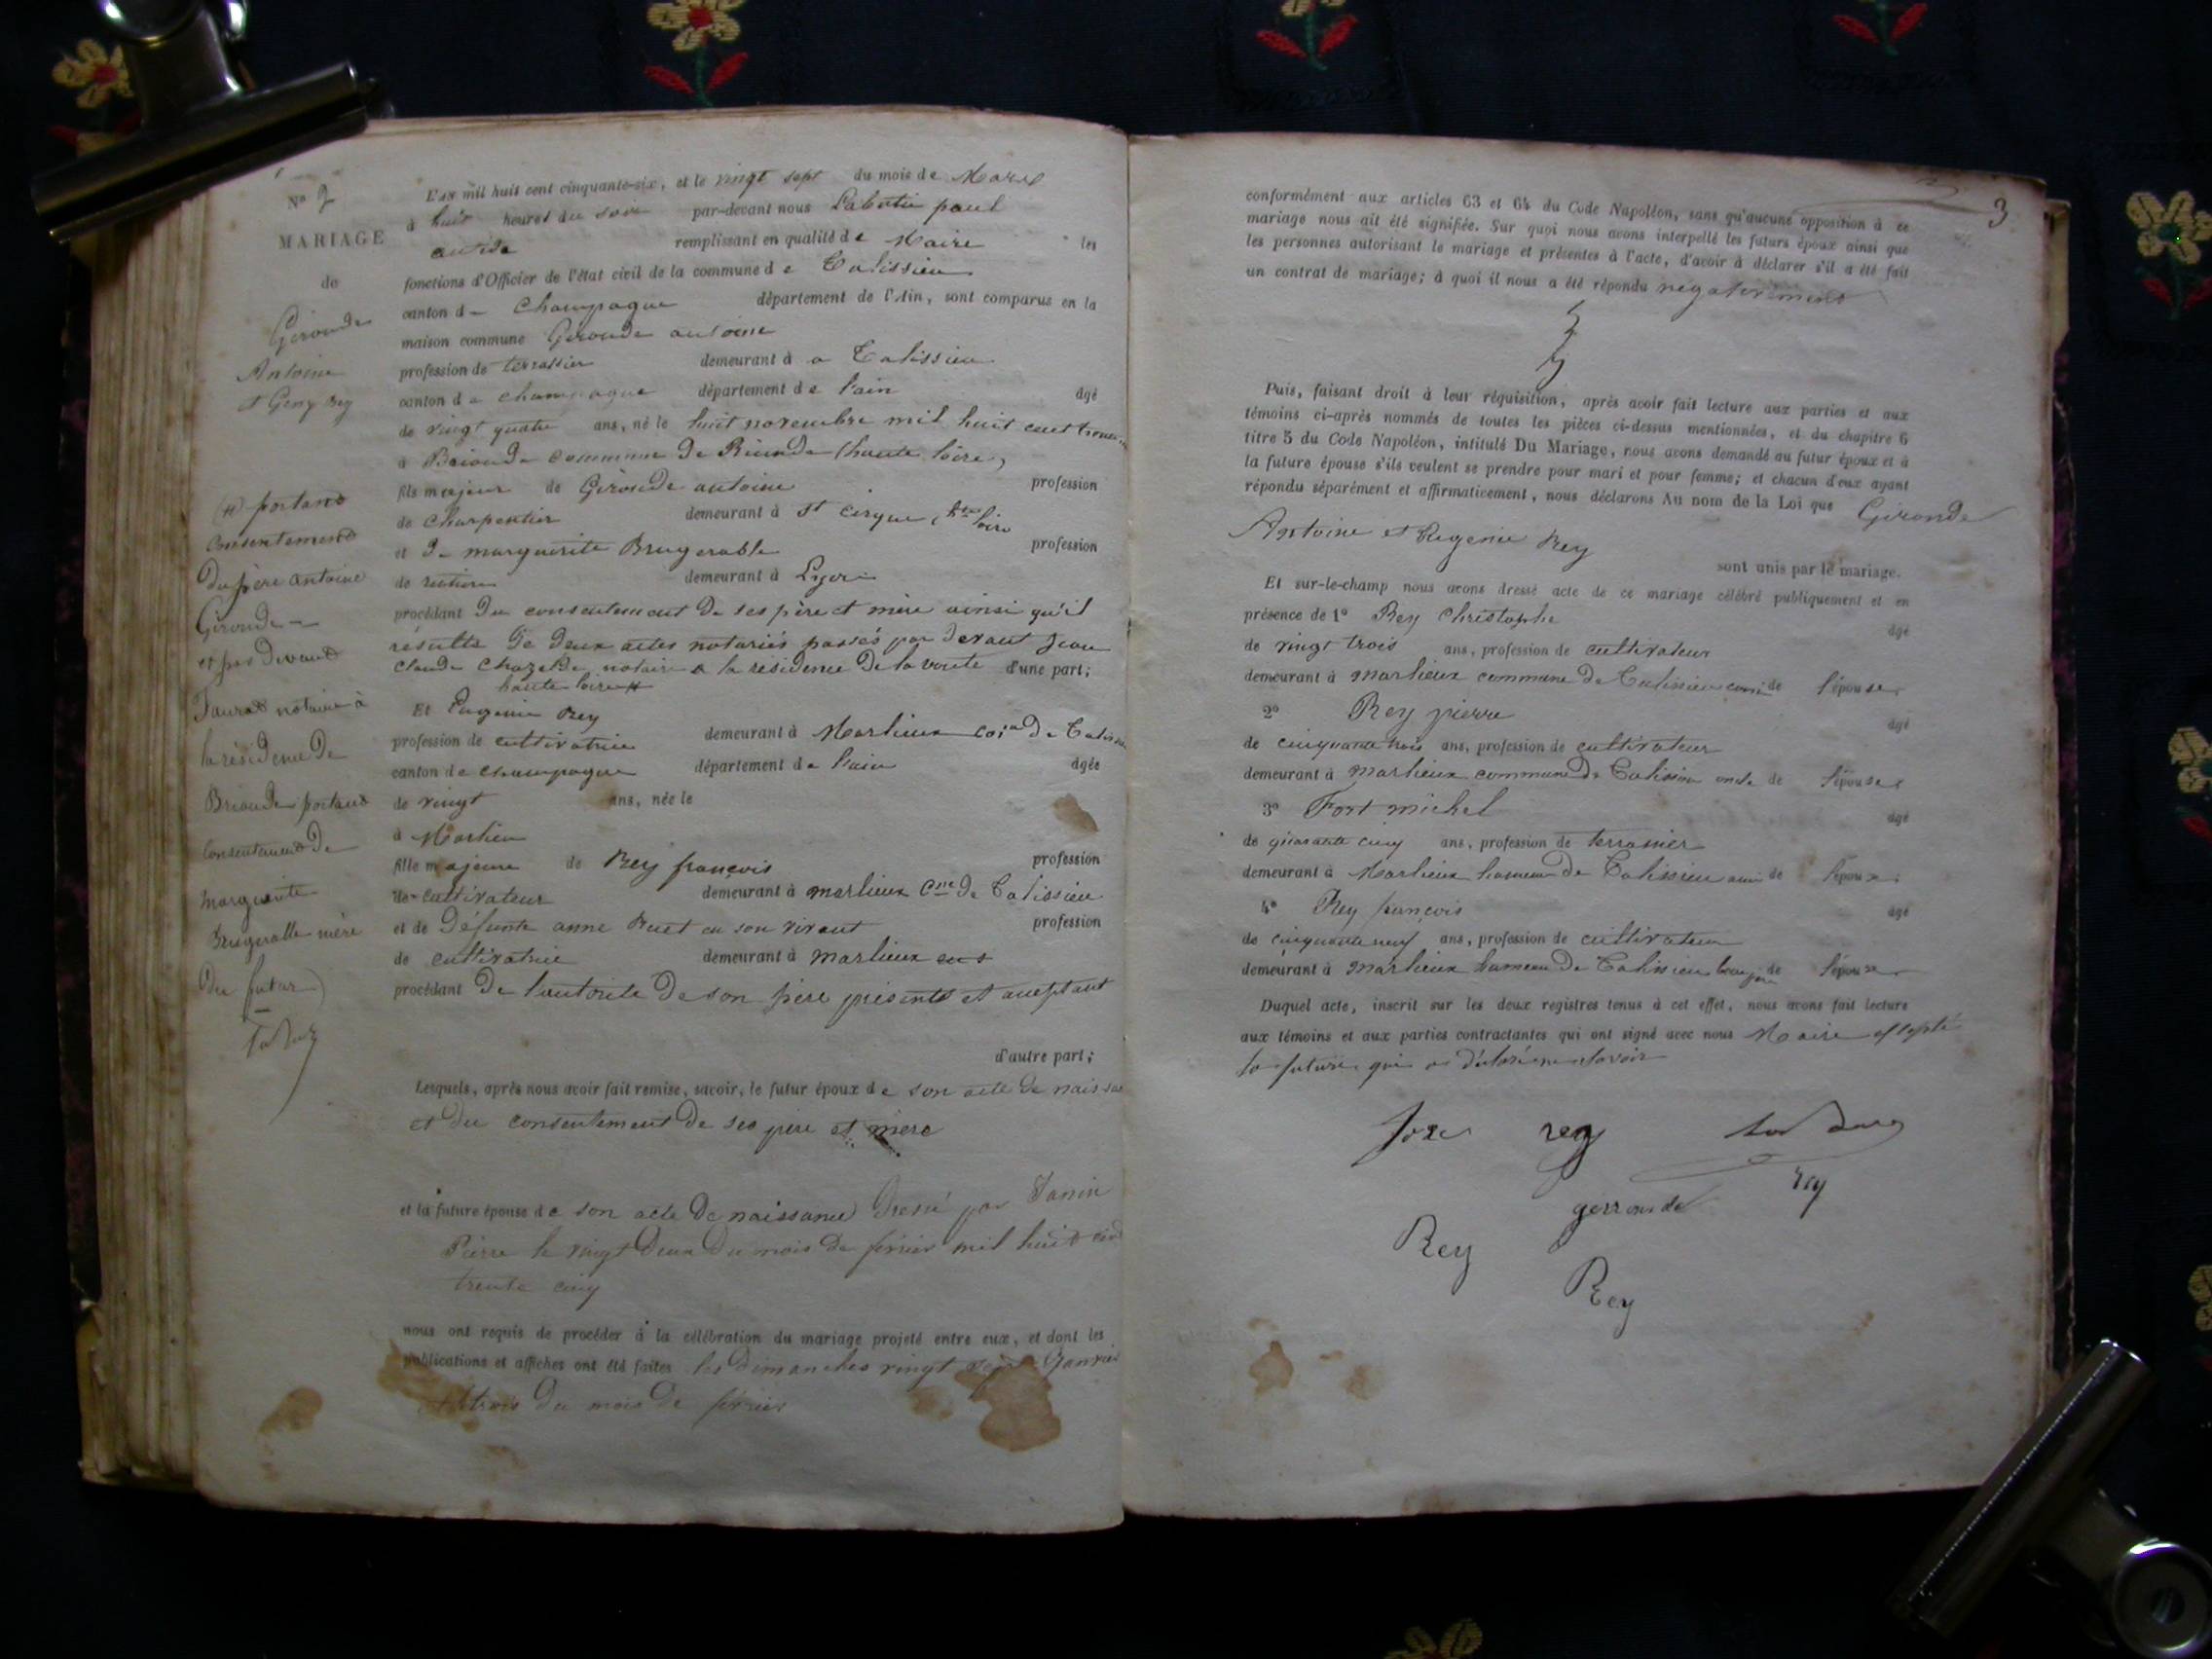 No 2
MARIAGE
de
Gironde
Antoine
et Rey
(#) portant
consentement
du père antoine
Gironde
et par devant
notaire à
la résidence de
Brioude portant
consentement de
marguerite
Brugerolle mère
du futur)
L'an mil huit cent cinquante-six, et le vingt sept du mois de Mars
à huit heures du soir par-devant nous paul
remplissant en qualité de Maire les
fonctions d'Officier de l'état civil de la commune de Talissieu
canton de Champagne département de l'Ain, sont comparus en la
maison commune Gironde antoine
profession de terrassier demeurant à a Talissieu
canton de champagne département de l'ain âgé
de vingt quatre ans, né le huit novembre mil huit cent
à Brioude commune de (haute loire)
fils majeur de Gironde antoine profession
de charpentier demeurant à st cirgue, hte loire
et de marguerite Brugerolle profession
de demeurant à
procédant du consentement de ses père et mère ainsi qu'il
résulte de deux actes notariés passés par devant Jean
claude notaire a la résidence de la voute d'une part;
haute loire #
Et Eugenie Rey
profession de cultivatrice demeurant à Marlieux de
canton de champagne département de l'ain âgée
de vingt ans, née le
à Marlieu
fille majeure de Rey françois profession
de cultivateur demeurant à marlieux Cne de Talissieu
et de défunte anne en son vivant profession
de cultivatrice demeurant à marlieux
procédant de l'autorité de son père présent et acceptant
d'autre part;
Lesquels, après nous avoir fait remise, savoir, le futur époux de son acte de
et du consentement de ses père et mère
et la future épouse de son acte de naissance dressé par
Pierre le vingt deux du mois de février mil huit cent
trente cinq
nous ont requis de procéder à la célébration du mariage projeté entre eux, et dont les
publications et affiches ont été faites les dimanches vingt janvier
et trois du mois de février
3
conformément aux articles 63 et 64 du Code Napoléon, sans qu'aucune opposition à ce
mariage nous ait été signifiée. Sur quoi nous avons interpellé les futurs époux ainsi que
les personnes autorisant le mariage et présentes à l'acte, d'avoir à déclarer s'il a été fait
un contrat de mariage; à quoi il nous a été répondu négativement
Puis, faisant droit à leur réquisition, après avoir fait lecture aux parties et aux
témoins ci-après nommés de toutes les pièces ci-dessus mentionnées, et du chapitre 6
titre 5 du Code Napoléon, intitulé Du Mariage, nous avons demandé au futur époux et à
la future épouse s'ils veulent se prendre pour mari et pour femme; et chacun d'eux ayant
répondu séparément et affirmativement, nous déclarons Au nom de la Loi que Gironde
Antoine et Eugenie Rey
sont unis par le mariage.
Et sur-le-champ nous avons dressé acte de ce mariage célébré publiquement et en
présence de 1° Rey Christophe âgé
de vingt trois ans, profession de cultivateur
demeurant à marlieux commune de Talissieu de l'épouse
2° Rey pierre âgé
de cinquante trois ans, profession de cultivateur
demeurant à marlieux commune de Talissieu oncle de l'épouse
3° Fort michel âgé
de quarante cinq ans, profession de terrassier
demeurant à Marlieux hameau de Talissieu ami de l'époux
4° Rey françois âgé
de cinquante neuf ans, profession de cultivateur
demeurant à marlieux hameau de Talissieu de
Duquel acte, inscrit sur les deux registres tenus à cet effet, nous avons fait lecture
aux témoins et aux parties contractantes qui ont signé avec nous Maire excepté
la future qui a déclaré ne savoir
rey
rey
gerronde
Rey
Rey